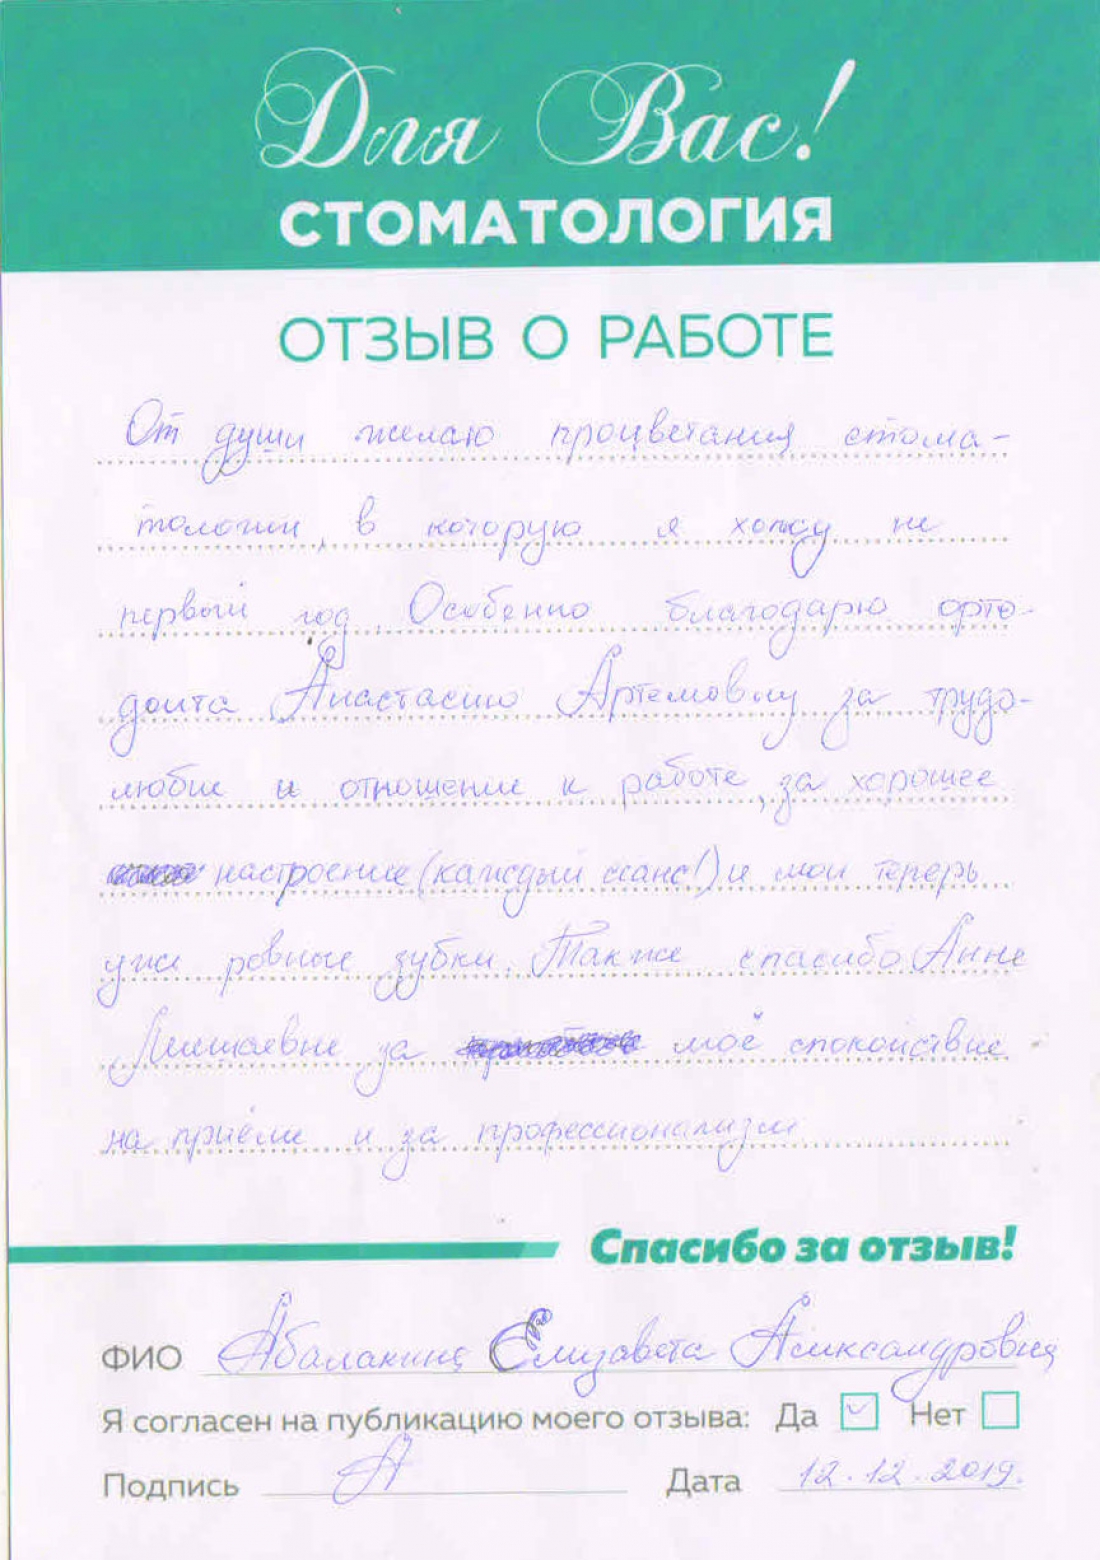 Для Вас!
СТОМАТОЛОГИЯ
ОТЗЫВ О РАБОТЕ
От души желаю процветания стома-
тологии, в которую я хожу не
первый год. Особенно благодарю орто-
донта Анастасию Артемовну за трудо-
любие и отношение к работе, за хорошее
настроение (каждый сеанс!) и мои теперь
уже ровные зубки. Также спасибо Анне
за моё спокойствие
на приёме и за профессионализм
Спасибо за отзыв!
ФИО Абалакина Елизавета Александровна
Я согласен на публикацию моего отзыва: Да Нет
Подпись Дата 12.12.2019.